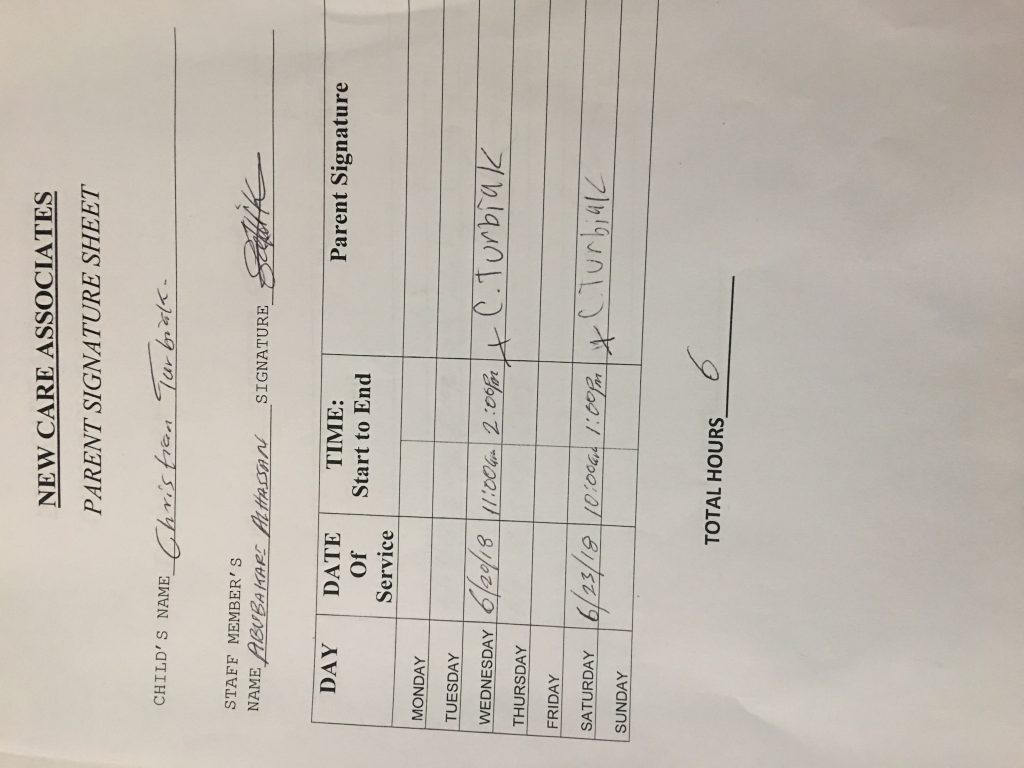 NEW CARE ASSOCIATES
PARENT SIGNATURE SHEET
CHILD'S NAME Christian Turbiak
STAFF MEMBER'S
NAME ABUBAKARI ALHASSAN SIGNATURE
DAY DATE Of Service TIME: Start to End Parent Signature
MONDAY
TUESDAY
WEDNESDAY 6/20/18 11:00am 2:00pm X C.Turbiak
THURSDAY
FRIDAY
SATURDAY 6/23/18 10:00am 1:00pm X C.Turbiak
SUNDAY
TOTAL HOURS 6